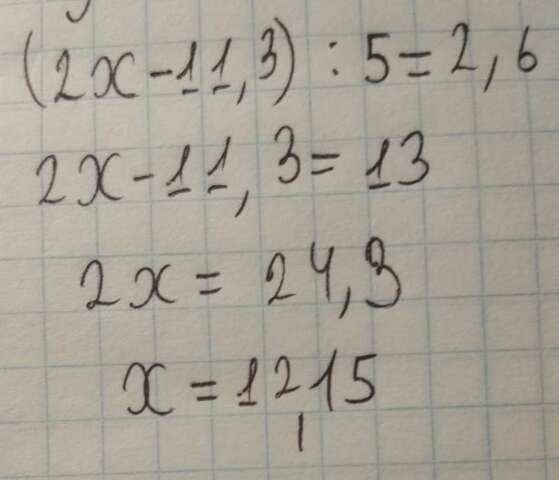 (2x-11,3) : 5=2,6
2x-11,3=13
2x=24,3
x=12,15